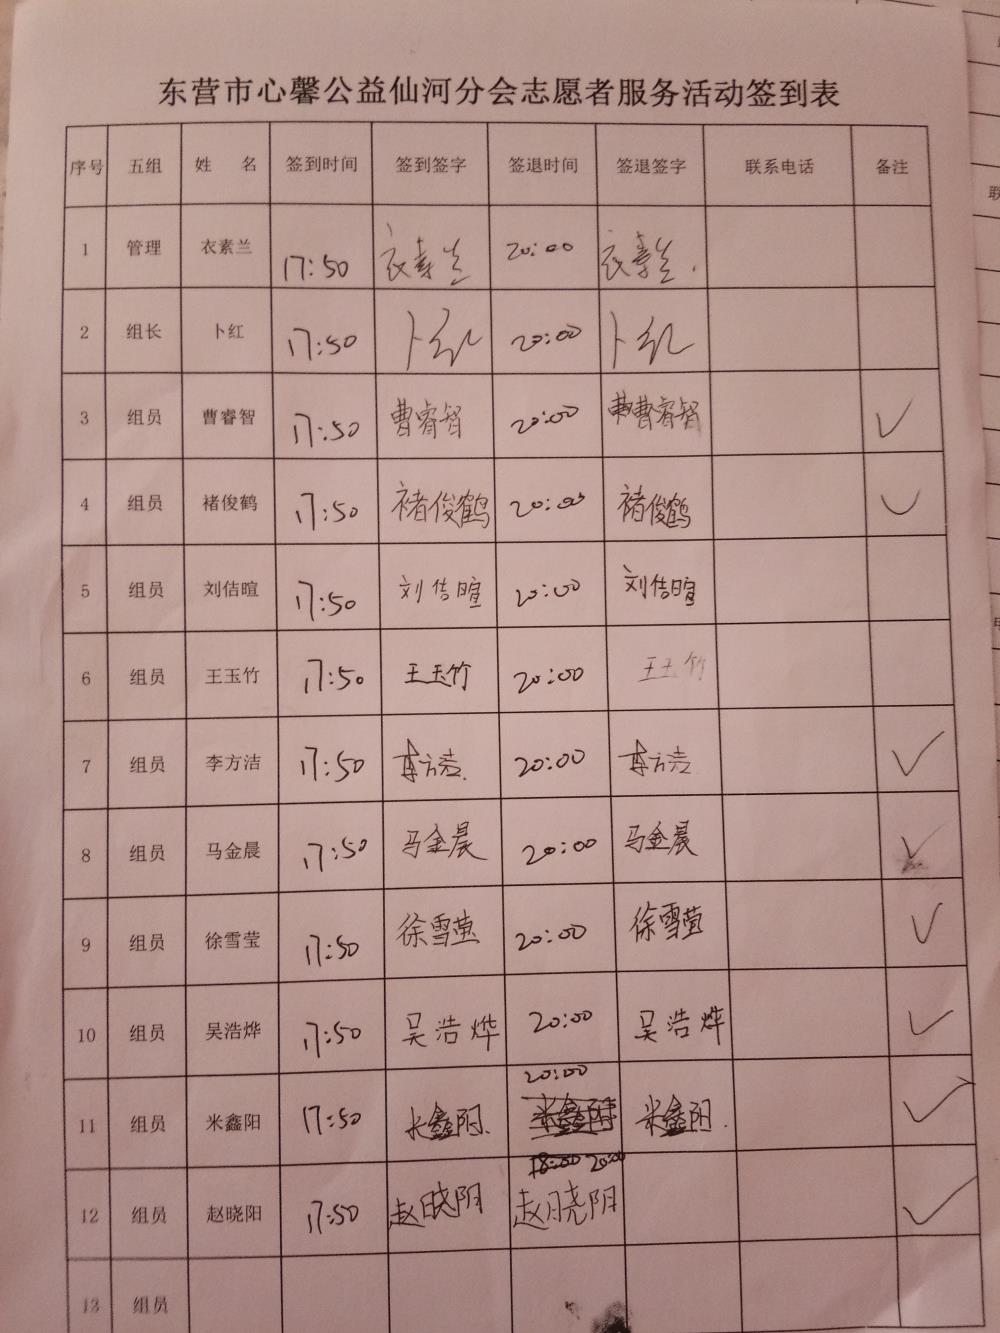 东营市心馨公益仙河分会志愿者服务活动签到表
序号 五组 姓 名 签到时间 签到签字 签退时间 签退签字 联系电话 备注
1 管理 衣素兰 17:50 衣素兰 20:00 衣素兰
2 组长 卜红 17:50 卜红 20:00 卜红
3 组员 曹睿智 17:50 曹睿智 20:00 曹睿智 ✓
4 组员 褚俊鹤 17:50 褚俊鹤 20:00 褚俊鹤 ✓
5 组员 刘佶暄 17:50 刘佶暄 20:00 刘佶暄
6 组员 王玉竹 17:50 王玉竹 20:00 王玉竹
7 组员 李方洁 17:50 李方洁 20:00 李方洁 ✓
8 组员 马金晨 17:50 马金晨 20:00 马金晨 ✓
9 组员 徐雪莹 17:50 徐雪莹 20:00 徐雪莹 ✓
10 组员 吴浩烨 17:50 吴浩烨 20:00 吴浩烨 ✓
11 组员 米鑫阳 17:50 米鑫阳 20:00 米鑫阳 米鑫阳 ✓
12 组员 赵晓阳 17:50 赵晓阳 18:00 20:00 赵晓阳 ✓
13 组员